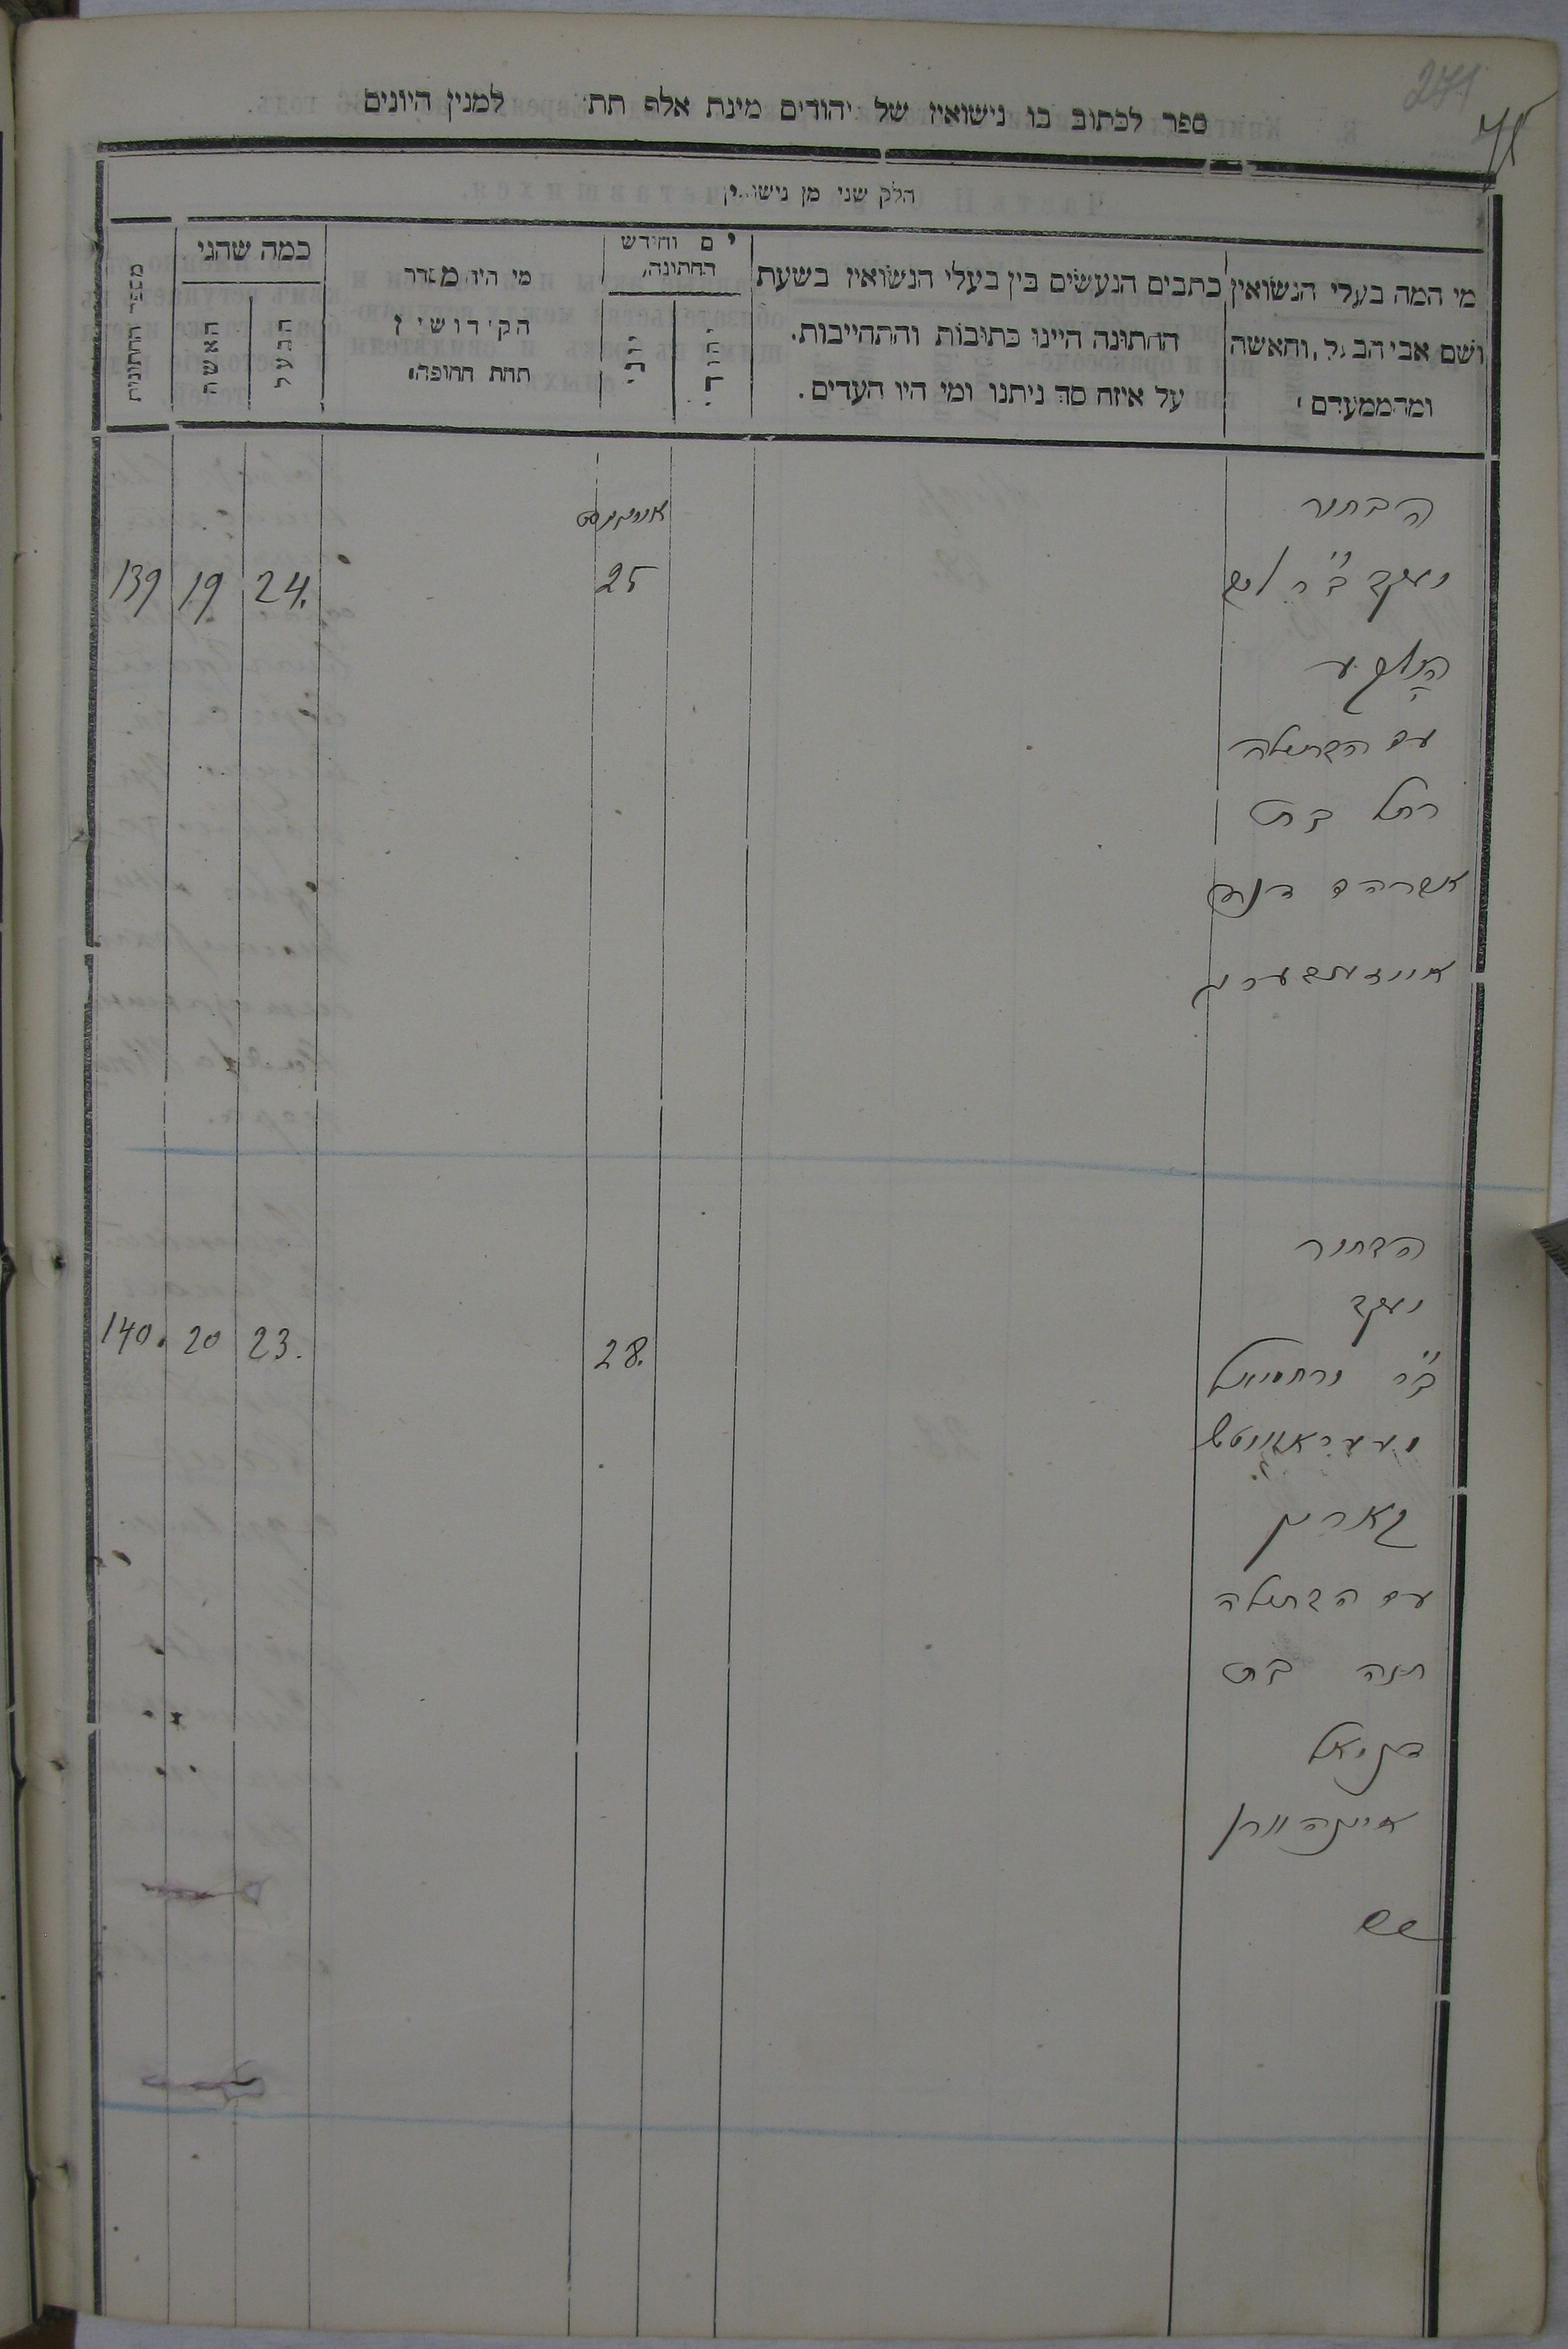 271
ספר לכתוב בו נישואין של יהודים מינת אלף תת׳ למנין היונים
חלק שני מן נישואין
מי המה בעלי הנשואין
ושם אבי הבעל, והאשה
ומהממעדם
כתבים הנעשים בין בעלי הנשואין בשעת
החתונה היינו כתובות והתהייבות.
על איזה סך ניתנו ומי היו העדים.
יום וחודש
החתונה,
יהודי
יוני
מי היו מסדר
הקידושין
תחת החופה,
כמה שהני
הבעל
האשה
מספר החתונות
הבחור
יעקב ב״ר
עם הבתולה
רחל בת
אברהם
אויגוסט
25
24.
19
139
הבחור
יעקב
ב״ר ירחמיאל
גארין
עם הבתולה
חנה בת
דניאל
איינהורן
28.
23.
20
140.